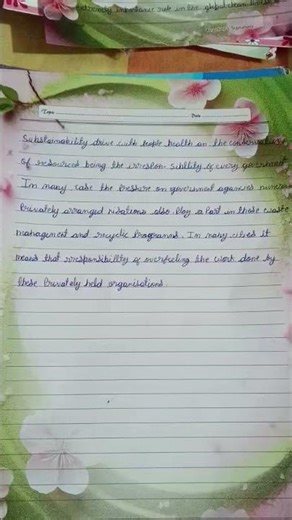 Topic Date
Substainability drive with people health on the conservation
of resources being the irrespon sibility of every government
In many case the Pressure on government agencies
Privately arranged also Play a Part in these waste
management and recycle Programms. In many cities it
means that responsibility of the work done by
these Privately held organisations.